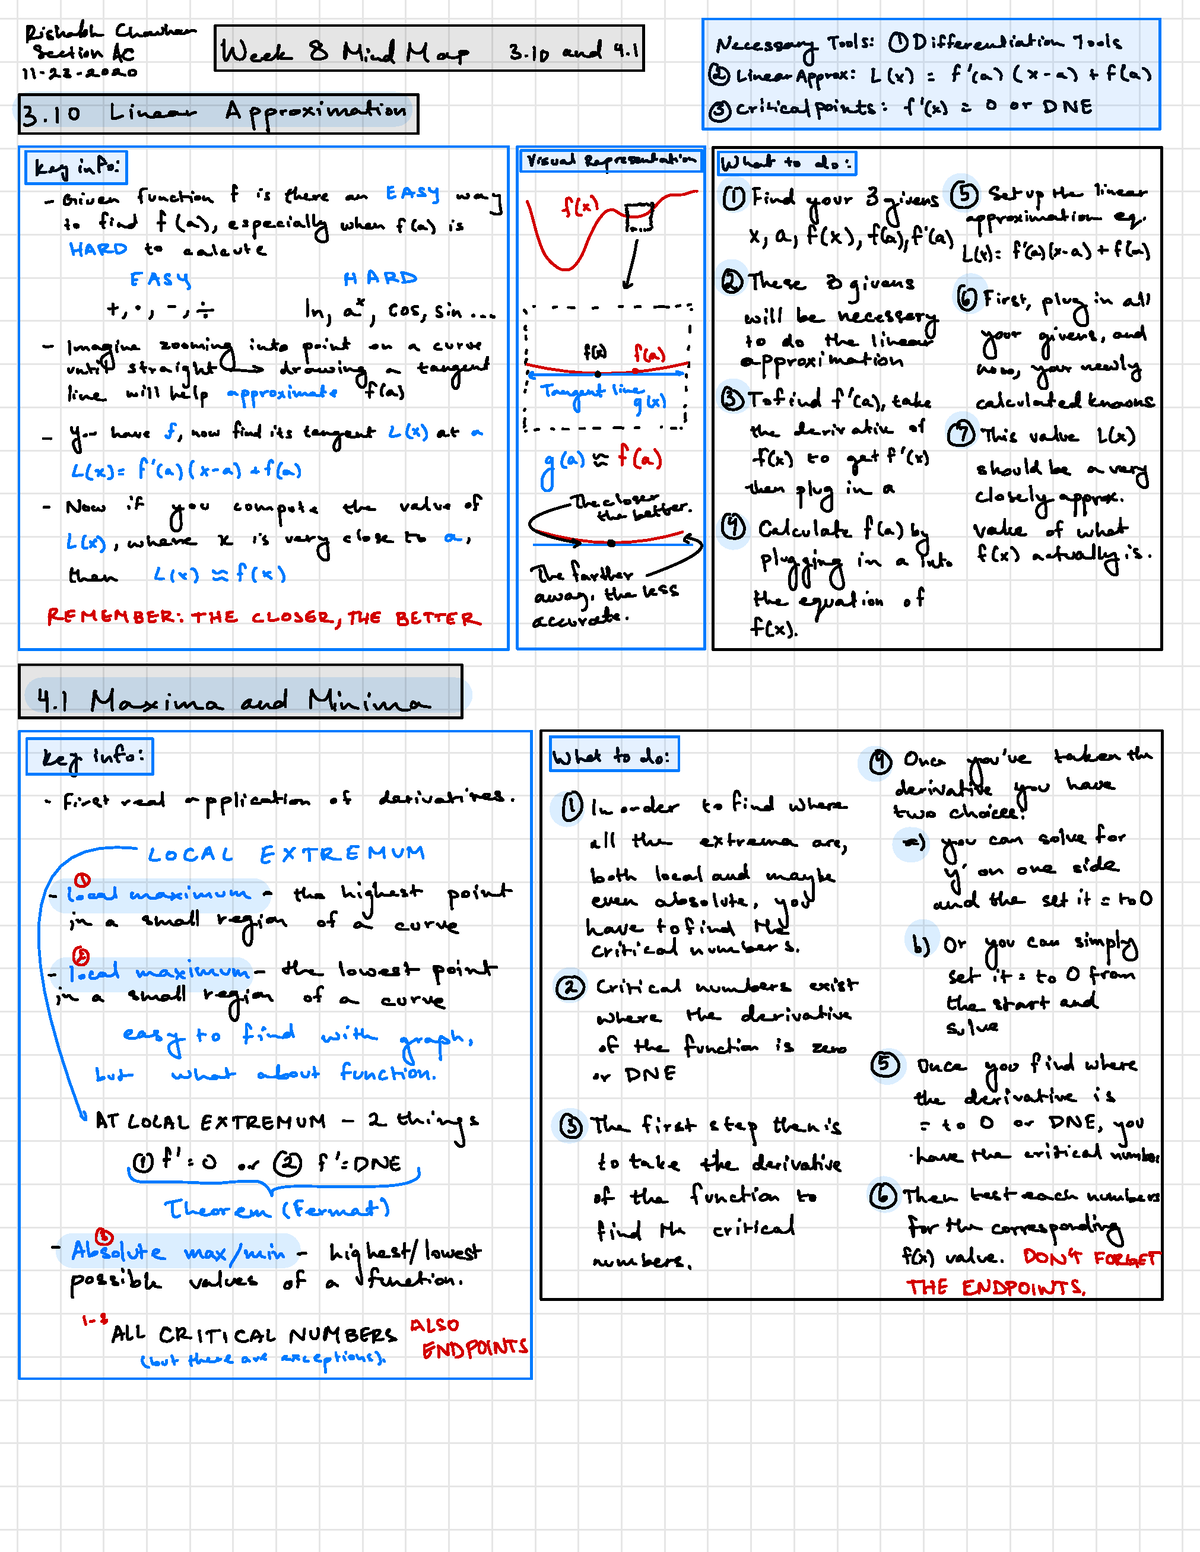 Rishabh Chauhan
Section AC
11-23-2020
Week 8 Mind Map 3.10 and 4.1
Necessary Tools: ① Differentiation Tools
② Linear Approx: L(x) = f'(a)(x-a) + f(a)
③ Critical points: f'(x) = 0 or DNE
3.10 Linear Approximation
Key info:
- Given function f is there an EASY way
to find f(a), especially when f(a) is
HARD to calcute
EASY HARD
+, ·, -, ÷ ln, aˣ, cos, sin ...
- Imagine zooming into point on a curve
until straight → drawing a tangent
line will help approximate f(a)
- You have f, now find its tangent L(x) at a
L(x) = f'(a)(x-a) + f(a)
- Now if you compute the value of
L(x), where x is very close to a,
then L(x) ≈ f(x)
REMEMBER: THE CLOSER, THE BETTER
Visual Representation
f(x)
f(x) f(a)
Tangent line
g(x)
g(a) ≈ f(a)
The closer
the better.
The farther
away, the less
accurate.
What to do:
① Find your 3 givens
x, a, f(x), f(a), f'(a)
② These 3 givens
will be necessary
to do the linear
approximation
③ To find f'(a), take
the derivative of
f(x) to get f'(x)
then plug in a
④ Calculate f(a) by
plugging in a into
the equation of
f(x).
⑤ Set up the linear
approximation eq.
L(x) = f'(a)(x-a) + f(a)
⑥ First, plug in all
your givens, and
now, your newly
calculated knowns
⑦ This value L(x)
should be a very
closely approx.
value of what
f(x) actually is.
4.1 Maxima and Minima
Key info:
- First real application of derivatives.
LOCAL EXTREMUM
①
- local maximum - the highest point
in a small region of a curve
②
- local maximum - the lowest point
in a small region of a curve
easy to find with graph,
but what about function.
AT LOCAL EXTREMUM - 2 things
① f' = 0 or ② f' = DNE
Theorem (Fermat)
③
- Absolute max/min - highest/lowest
possible values of a function.
1-3 ALL CRITICAL NUMBERS ALSO
ENDPOINTS
(but there are exceptions).
What to do:
① In order to find where
all the extrema are,
both local and maybe
even absolute, you
have to find the
critical numbers.
② Critical numbers exist
where the derivative
of the function is zero
or DNE
③ The first step then is
to take the derivative
of the function to
find the critical
numbers.
④ Once you've taken the
derivative you have
two choices:
a) you can solve for
y' on one side
and the set it = to 0
b) Or you can simply
set it = to 0 from
the start and
solve
⑤ Once you find where
the derivative is
= to 0 or DNE, you
have the critical number
⑥ Then test each numbers
for the corresponding
f(x) value. DON'T FORGET
THE ENDPOINTS.